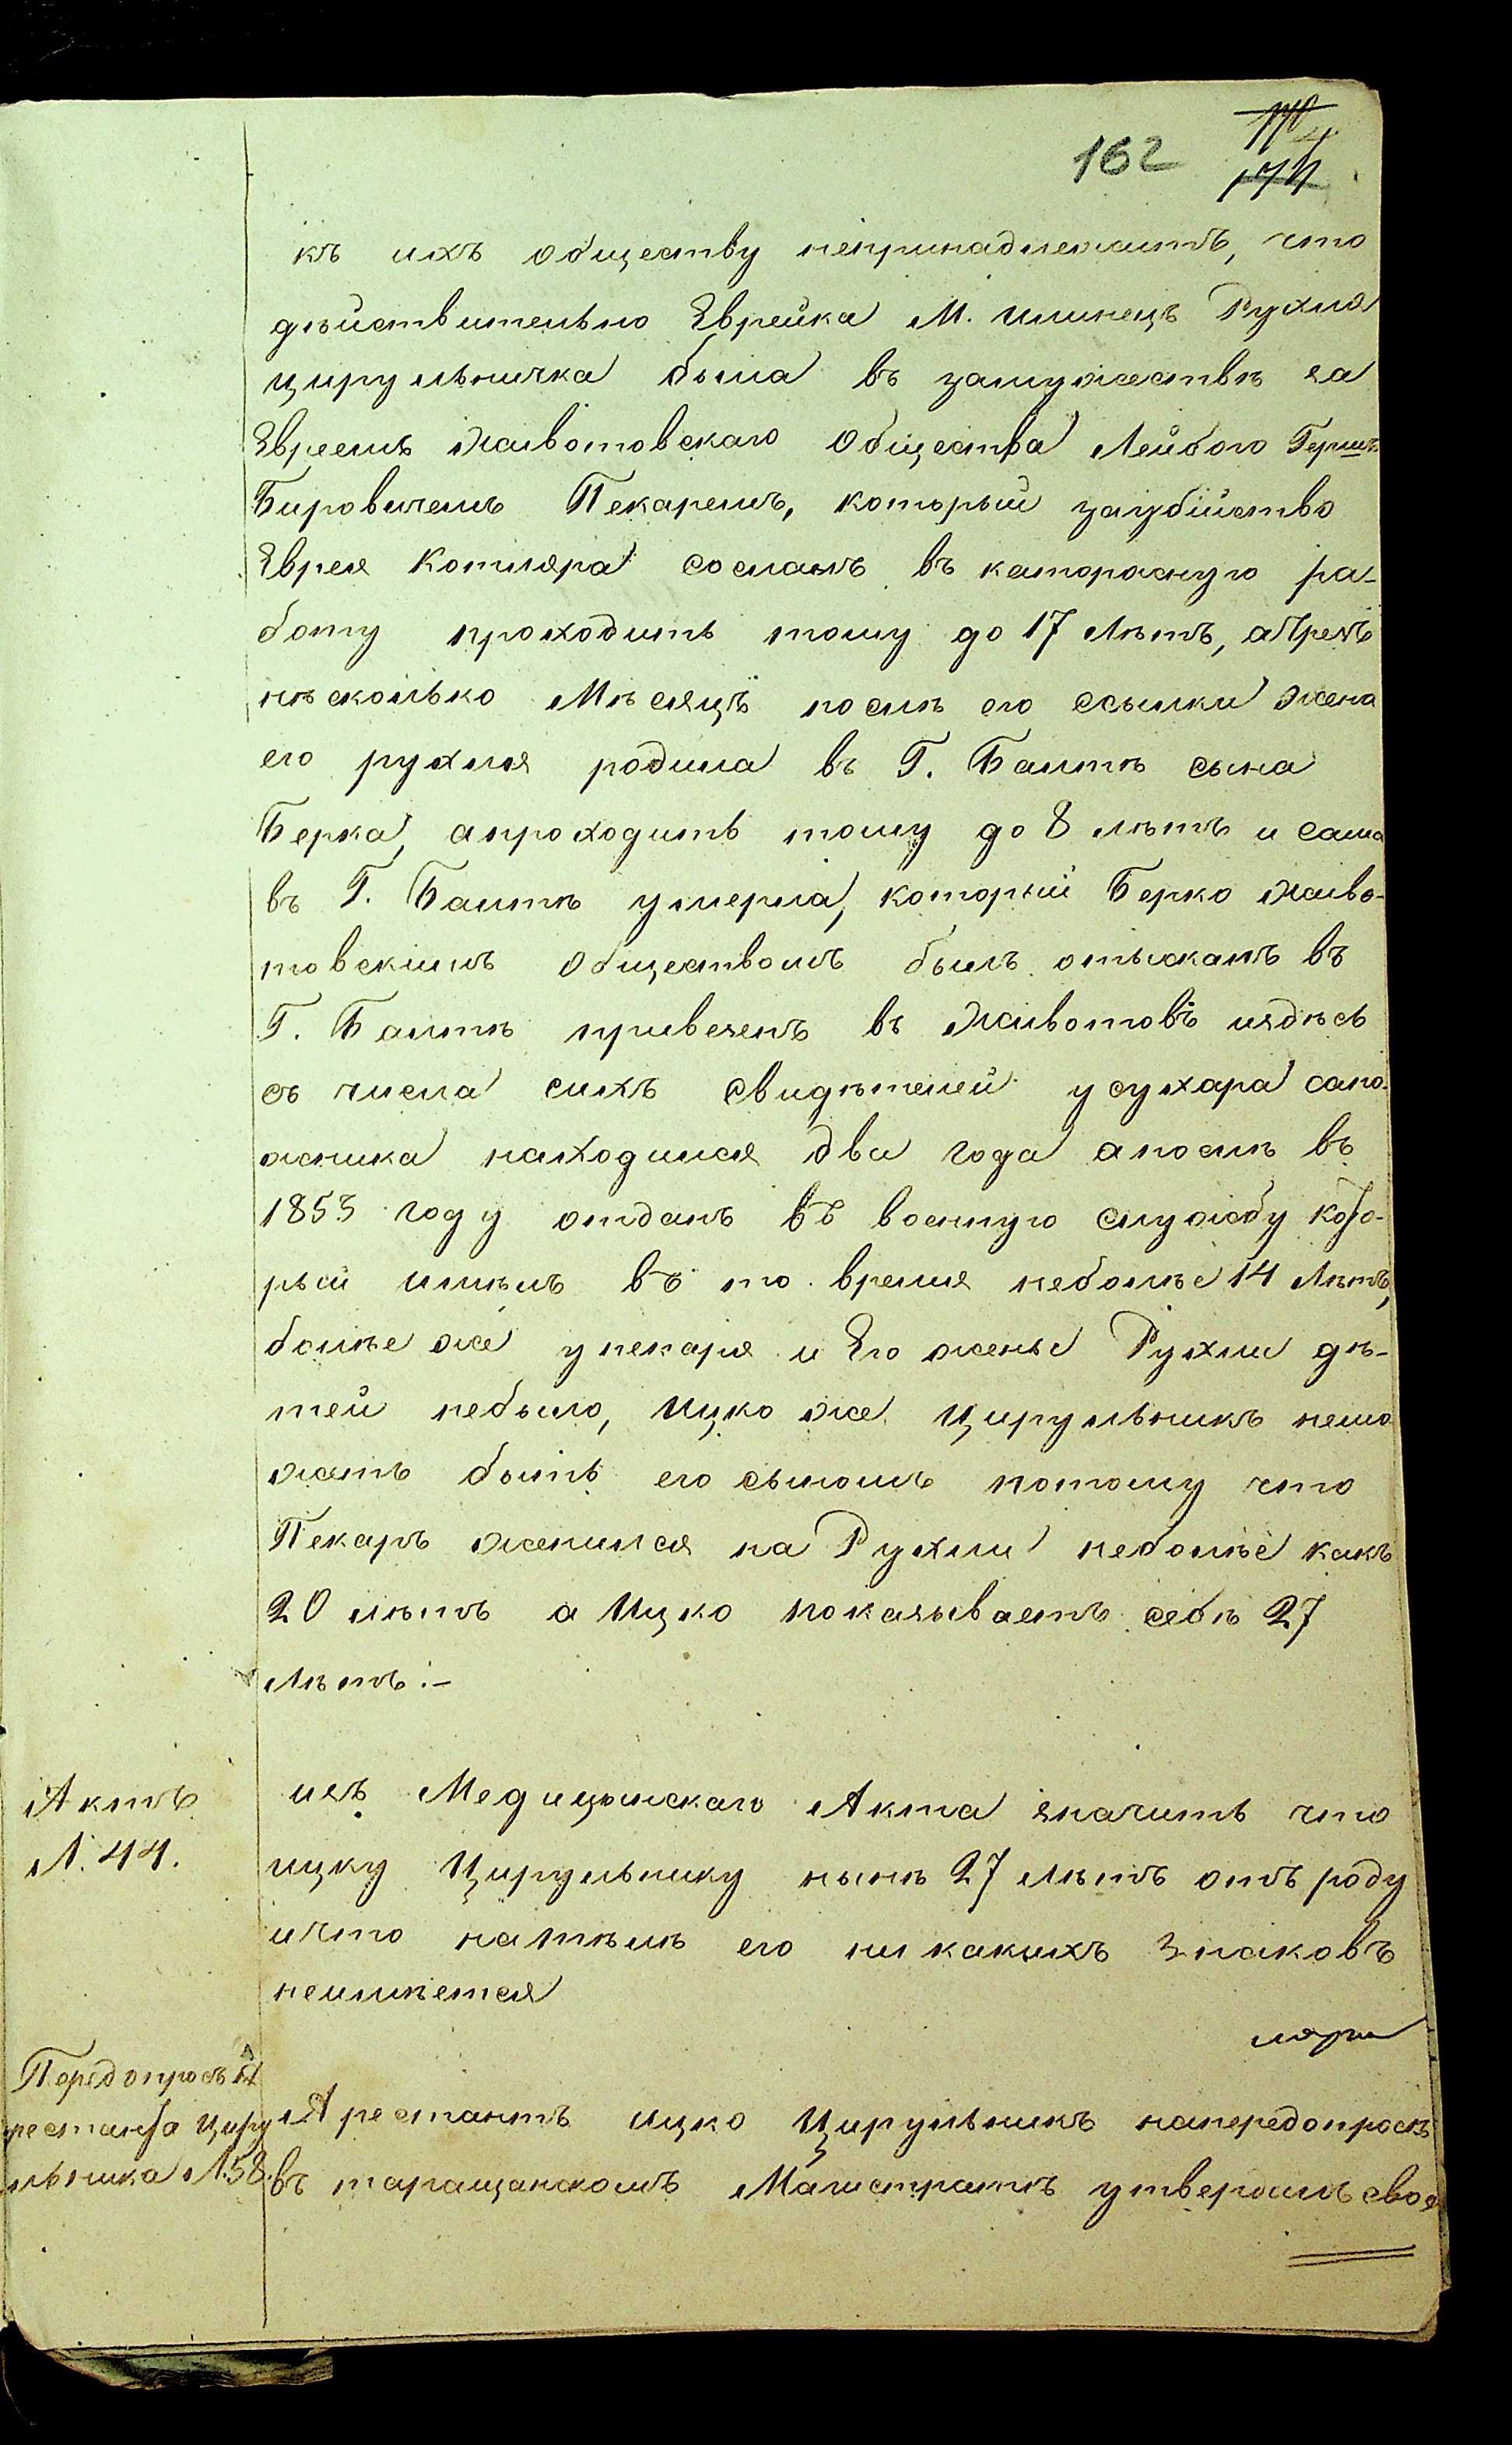 162
174
къ ихъ обществу непринадлежитъ, что
дѣйствительно Еврейка М. Илинецъ Рухля
цирульничка была въ замужествѣ за
Евреемъ Животовскаго Общества Лейбою Гершъ
Бировичемъ Пекаремъ, который заубійство
Еврея Котляра сосланъ въ каторжную ра-
боту проходитъ тому до 17 Лѣтъ, а
нѣсколько Мѣсяцъ послѣ его ссылки жена
его рухля родила въ Г. Балтѣ сына
Берка, апроходитъ тому до 8 лѣтъ и сама
въ Г. Балтѣ умерла, который Берко Живо-
товскимъ Обществомъ былъ отысканъ въ
Г. Балтѣ привезенъ въ Животовъ издѣсь
съ числа сихъ свидѣтелей у сухара сапо-
жника находился два года апослѣ въ
1853 году отданъ въ военную службу кото-
рый имѣлъ въ то время неболѣе 14 Лѣтъ,
болѣе же упекаря и Его жены Рухли дѣ-
тей небыло, Ицко же Цирульникъ немо
жетъ быть его сыномъ потому что
Пекарь женился на Рухли неболѣе какъ
20 лѣтъ а Ицко показываетъ себѣ 27
лѣтъ:-
Актъ
Л. 44.
изъ Медицынскаго Акта значитъ что
ицку Цирульнику нынѣ 27 лѣтъ отъ роду
ичто натѣлѣ его ни какихъ знаковъ
неимѣется
Передопросъ А
рестанта Циру
льника Л.58.
Арестантъ ицко Цирульникъ напередопросѣ
въ таращанскомъ Магистратѣ утвердилъ свое